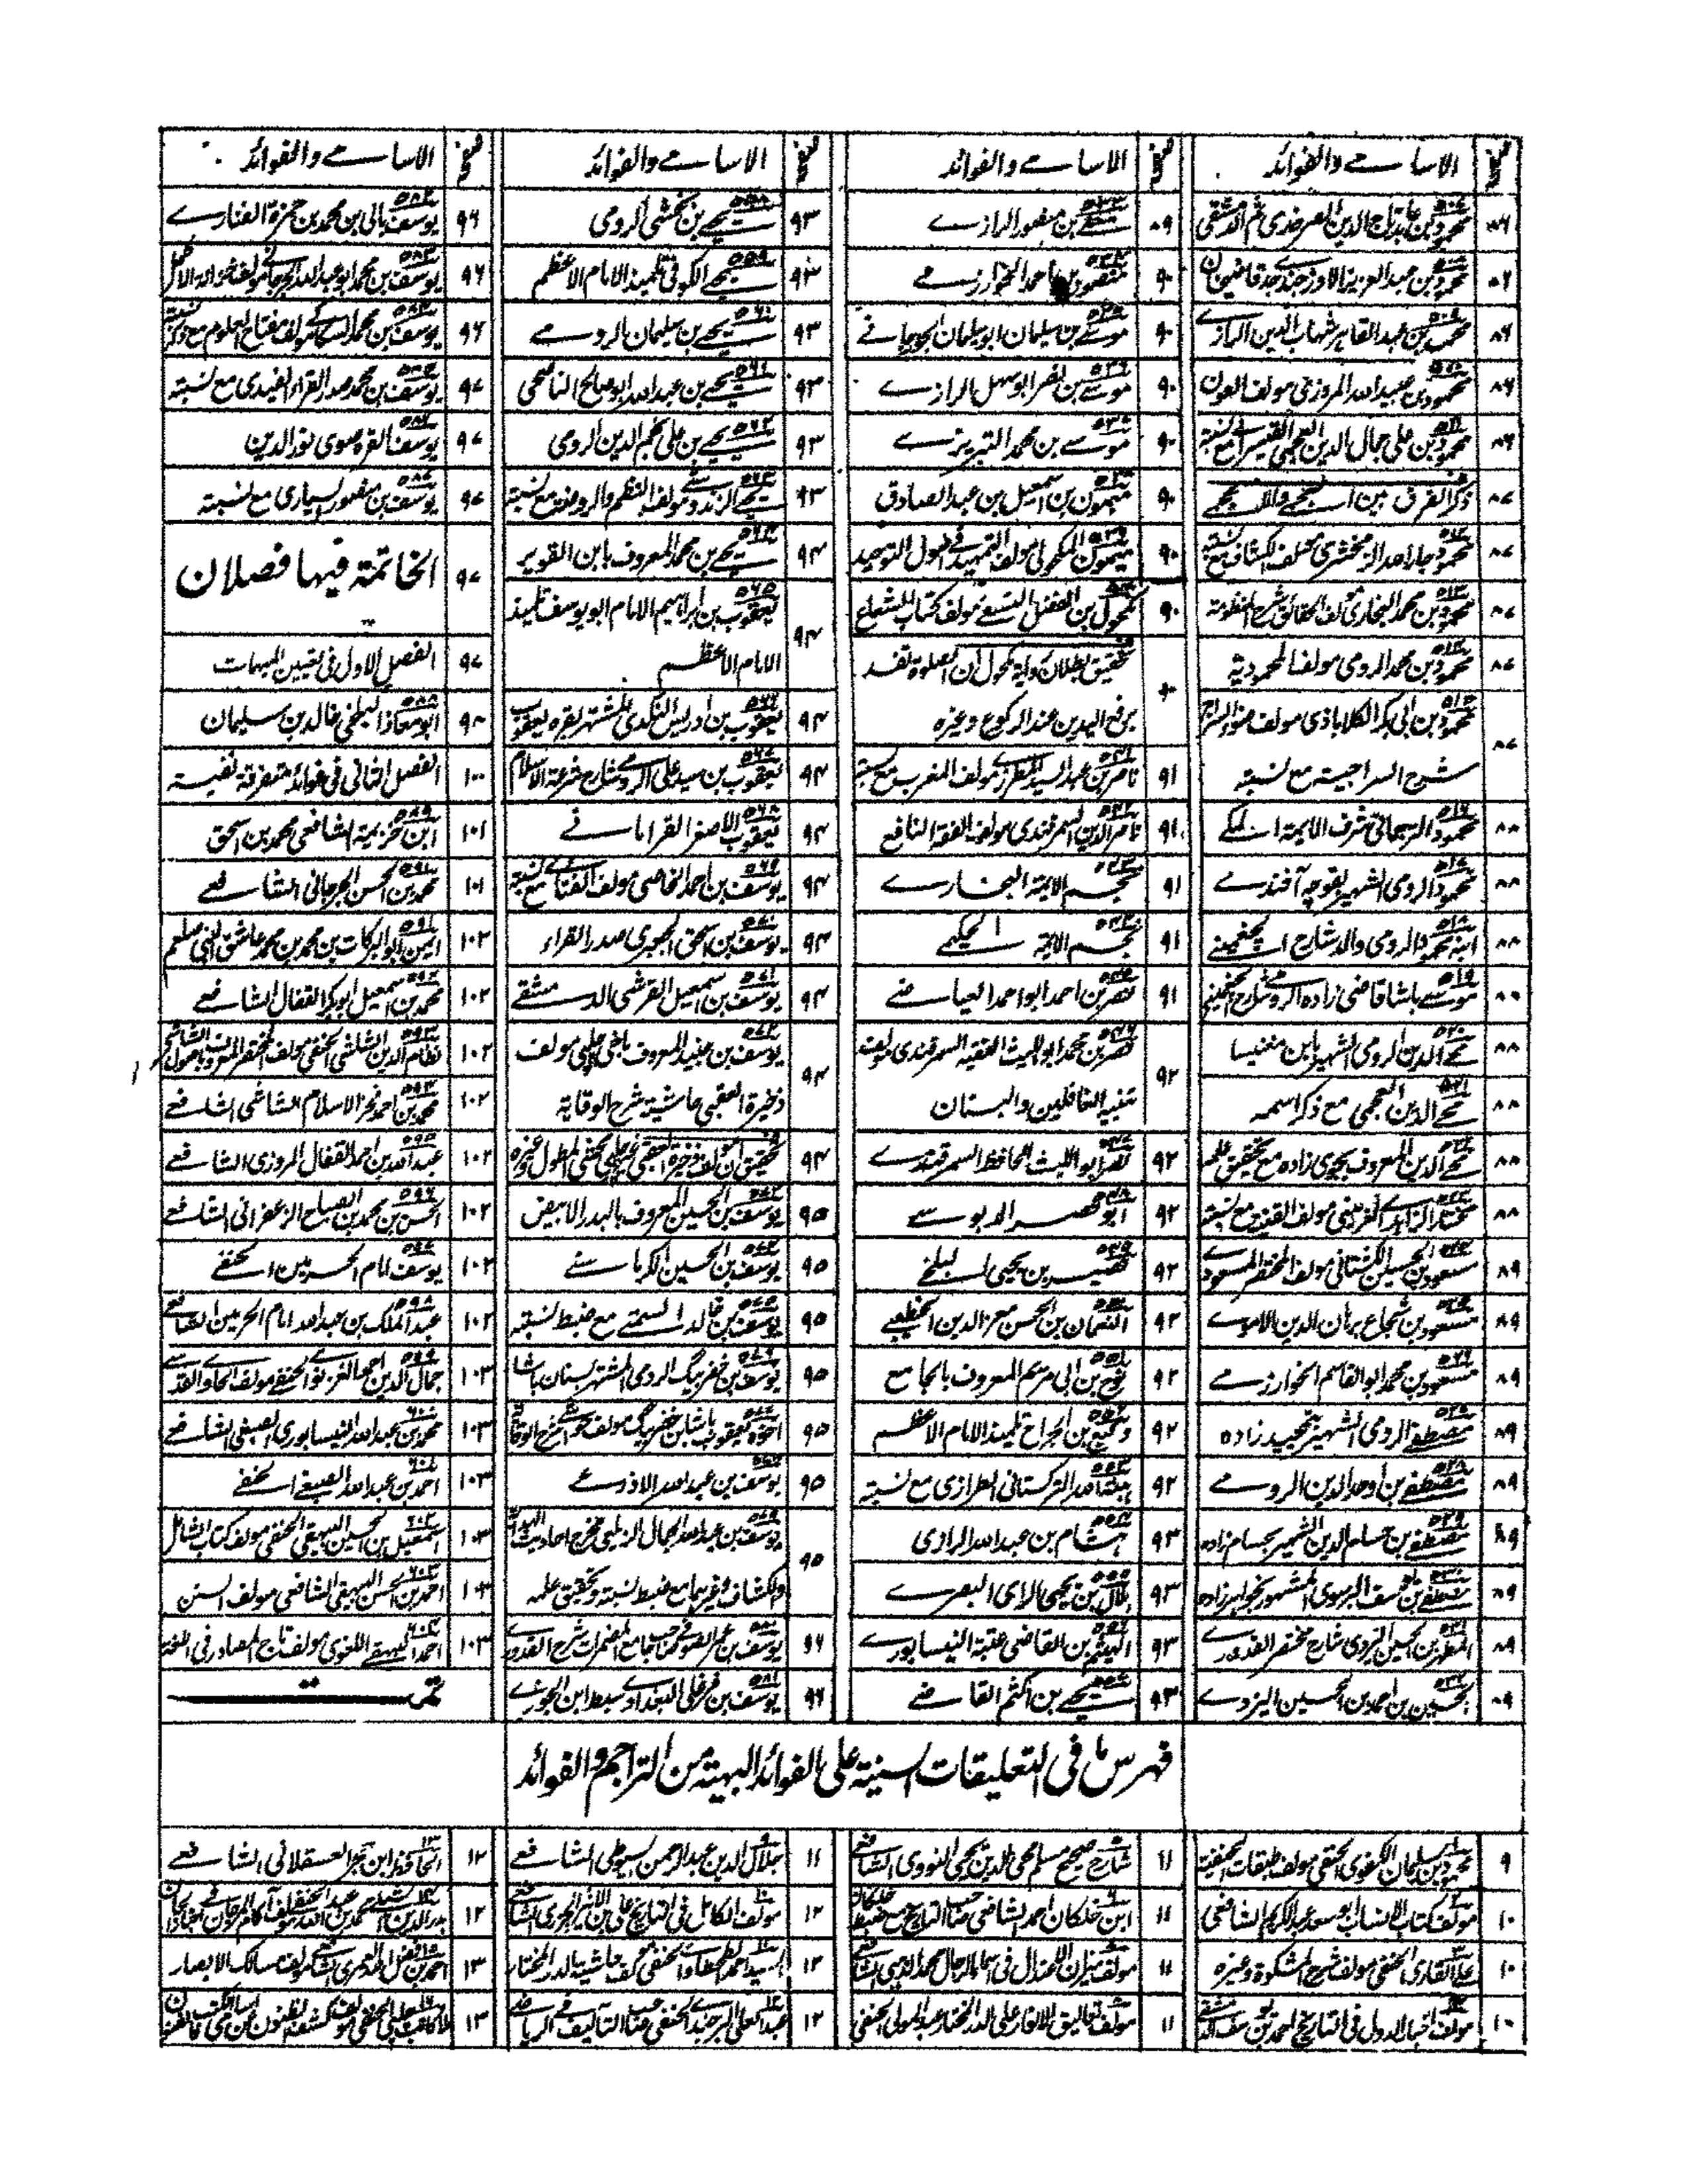 صفحه الاسامے والفوائد
۸۶ محمود بن عابد تاج الدین الصرخدی ثم الدمشقی
۸۶ محمود بن عبد العزیز الاوزجندے جد قاضیخان
۸۶ محمد بن عبد القاهر شهاب الدین الرازے
۸۶ محمود بن عبید الله المروزی مولف العون
۸۶ محمود بن علی جمال الدین العجمی القیصرے مع نسبته
۸۷ ذکر الفرق بین
۸۷ محمود جار الله الزمخشری مولف الکشاف مع نسبته
۸۷ محمود بن محمد البخاری مولف الحقائق شرح المنظومة
۸۷ محمود بن محمد الرومی مولف المحمدیة
۸۷ محمود بن ابی بکر الکلاباذی مولف ضوء السراج
شرح السراجیة مع نسبته
۸۸ محمود الترجمانی شرف الایمة المکے
۸۸ محمود الرومی الشهیر بقوجه آفندے
۸۸ ابنه محمد الرومی والد شارح الچغمینے
۸۸ موسے باشا قاضی زاده الرومے شارح الچغمینی
۸۸ محے الدین الرومی الشهیر بابن مغنیسا
۸۸ محے الدین العجمی مع ذکر اسمه
۸۸ محے الدین المعروف بچوی زاده مع تحقیق علمه
۸۸ مختار الزاهدے الغزمینی مولف القنیة مع نسبته
۸۹ مسعود بن الحسین الکشانی مولف المختصر المسعودے
۸۹ مسعود بن شجاع برهان الدین الامویے
۸۹ مسعود بن محمد ابو القاسم الخوارزمے
۸۹ مصطفے الرومی الشهیر بتحبید زاده
۸۹ مصطفے بن اوحد الدین الرومے
۸۹ مصطفے بن حسام الدین الشهیر بحسام زاده
۸۹ مصطفے بن یوسف البرسوی المشهور بخواجه زاده
۸۹ المطهر بن الحسین الیزدی شارح مختصر القدورے
۸۹ الحسین بن احمد بن الحسین الیزدے
صفحه الاسامے والفوائد
۸۹ معلے بن منصور الرازے
۹۰ منصور بن احمد الخوارزمے
۹۰ موسے بن سلیمان ابو سلیمان الجوزجانے
۹۰ موسے بن نصر ابو سهل الرازے
۹۰ موسے بن محمد التبریزے
۹۰ میمون بن اسمعیل بن عبد الصادق
۹۰ میمون المکحولی مولف التمهید فی اصول التوحید
۹۰ مکحول بن الفضل النسفے مولف کتاب الشعاع
۹۰ تحقیق بطلان روایة مکحول ان الصلوة تفسد
برفع الیدین عند الرکوع وغیره
۹۱ ناصر بن عبد السید المطرزے مولف المغرب مع نسبته
۹۱ ناصر الدین السمرقندی مولف الفقه النافع
۹۱ نجم الایمة البخارے
۹۱ نجم الایمة الحکیمے
۹۱ نصر بن احمد ابو احمد العیاضے
۹۲ نصر بن محمد ابو اللیث الفقیه السمرقندی مولف
تنبیه الغافلین والبستان
۹۲ نصر ابو اللیث الحافظ السمرقندے
۹۲ ابو نصر الدبوسے
۹۲ نصیر بن یحیی البلخے
۹۲ النعمان بن الحسن معز الدین الخطیبے
۹۲ نوح بن ابی مریم المعروف بالجامع
۹۲ وکیع بن الجراح تلمیذ الامام الاعظم
۹۲ هبة الله الترکستانی الطرازی مع نسبته
۹۳ هشام بن عبد الله الرازی
۹۳ هلال بن یحیی الرای البصرے
۹۳ الهیثم بن القاضی عتبة النیسابورے
۹۳ یحیے بن اکثم القاضے
صفحه الاسامے والفوائد
۹۳ یحیے بن بخشی الرومی
۹۳ یحیے الکوفی تلمیذ الامام الاعظم
۹۳ یحیے بن سلیمان الرومے
۹۳ یحیے بن عبد الله ابو صالح الناصحی
۹۳ یحیے بن علی نجم الدین الرومی
۹۳ یحیے الزندویستے مولف النظم والروضة مع نسبته
۹۴ یحیے بن محمد المعروف بابن القویر
۹۴ یعقوب بن ابراهیم الامام ابو یوسف تلمیذ
الامام الاعظم
۹۴ یعقوب بن ادریس النکدی المشتهر بقره یعقوب
۹۴ یعقوب بن سید علی الرومے شارح شرعة الاسلام
۹۴ یعقوب الاصغر القرامانے
۹۴ یوسف بن احمد الخاصی مولف الفتاوے مع نسبته
۹۴ یوسف بن اسحق الجعبری صدر القراء
۹۴ یوسف بن اسمعیل القرشی الدمشقے
۹۴ یوسف بن جنید المعروف باخی چلپی مولف
ذخیرة العقبی حاشیة شرح الوقایة
۹۴ تحقیق ان مولف ذخیرة العقبی غیر چلپی محشی المطول وغیره
۹۵ یوسف بن الحسین المعروف بالبدر الابیض
۹۵ یوسف بن الحسین الکرماسنے
۹۵ یوسف بن خالد السمتے مع ضبط نسبته
۹۵ یوسف بن خضر بیگ الرومی المشتهر بسنان باشا
۹۵ اخوه یعقوب باشا بن خضر بیگ مولف حواشے شرح الوقایة
۹۵ یوسف بن عبد الله الاذرعے
۹۵ یوسف بن عبد الله الجمال الزیلعی مخرج احادیث الهدایة
والکشاف وغیرهما مع ضبط نسبته وتحقیق علمه
۹۶ یوسف بن عمر الصوفی صاحب جامع المضمرات شرح القدورے
۹۶ یوسف بن قزغلی البغدادے سبط ابن الجوزے
صفحه الاسامے والفوائد
۹۶ یوسف بالی بن محمد بن حمزة الفنارے
۹۶ یوسف بن محمد ابو عبد الله الجرجانے مولف خزانة الاکمل
۹۶ یوسف بن محمد السکاکے مولف مفتاح العلوم مع ذکر نسبته
۹۷ یوسف بن محمد صدر القراء الفیدی مع نسبته
۹۷ یوسف القره صوی نور الدین
۹۷ یوسف بن منصور السیاری مع نسبته
۹۷ الخاتمة فیها فصلان
۹۷ الفصل الاول فی تعیین المبهمات
۹۸ ابو معاذ البلخی خالد بن سلیمان
۱۰۰ الفصل الثانی فی فوائد متفرقة نفیسة
۱۰۱ ابن خزیمة الشافعی محمد بن اسحق
۱۰۱ محمد بن الحسن الجرجانی الشافعے
۱۰۲ ایمن ابو البرکات بن محمد بن محمد عاشق النبی صلعم
۱۰۲ محمد بن اسمعیل ابو بکر القفال الشافعے
۱۰۲ نظام الدین الشاشی الحنفی مولف المختصر المعروف باصول الشاشی
۱۰۲ محمد بن احمد فخر الاسلام الشاشی الشافعے
۱۰۲ عبد الله بن احمد القفال المروزی الشافعے
۱۰۲ الحسن بن محمد بن الصباح الزعفرانی الشافعے
۱۰۲ یوسف امام الحرمین الحنفے
۱۰۲ عبد الملک بن عبد الله امام الحرمین الشافعے
۱۰۳ جمال الدین احمد الغزنوے الحنفے مولف الحاوی القدسے
۱۰۳ محمد بن عبد الله النیسابوری الصبغی الشافعے
۱۰۳ احمد بن عبد الله الصبغے الحنفے
۱۰۳ اسمعیل بن الحسین البیهقی الحنفی مولف کتاب الشامل
۱۰۳ احمد بن الحسن البیهقی الشافعی مولف السنن
۱۰۳ احمد البیهقے اللغوی مولف تاج المصادر فی اللغة
تمت
فهرس ما فی التعلیقات السنیة علی الفوائد البهیة من التراجم والفوائد
۹ محمود بن سلیمان الکفوی الحنفی مولف طبقات الحنفیة
۱۰ مولف کتاب الانساب ابو سعد عبد الکریم الشافعی
۱۰ علے القاری الحنفی مولف شرح المشکوة وغیره
۱۰ مولف اخبار الدول فی التاریخ احمد بن یوسف الدمشقے
۱۱ شارح صحیح مسلم محی الدین یحیی النووی الشافعے
۱۱ ابن خلکان احمد الشافعی صاحب التاریخ مع ضبط خلکان
۱۱ مولف میزان الاعتدال فی اسماء الرجال محمد الذهبی الشافعے
۱۱ مولف تعالیق الانوار علی الدر المختار عبد المولی الحنفی
۱۱ جلال الدین عبد الرحمن السیوطی الشافعے
۱۲ مولف الکامل فی التاریخ علی بن الاثیر الجزری الشافعے
۱۲ السید احمد الطحطاوے الحنفی مولف حاشیة الدر المختار
۱۲ عبد العلی البرجندے الحنفی صاحب التآلیف فی الریاضے
۱۲ الحافظ ابن حجر العسقلانی الشافعے
۱۲ بدر الدین محمد بن عبد الله الشبلے الحنفی مولف آکام المرجان فی احکام الجان
۱۳ احمد بن فضل الله العمری الشافعے مولف مسالک الابصار
۱۳ ملا کاتب چلپی الحنفی مولف کشف الظنون عن اسامی الکتب والفنون